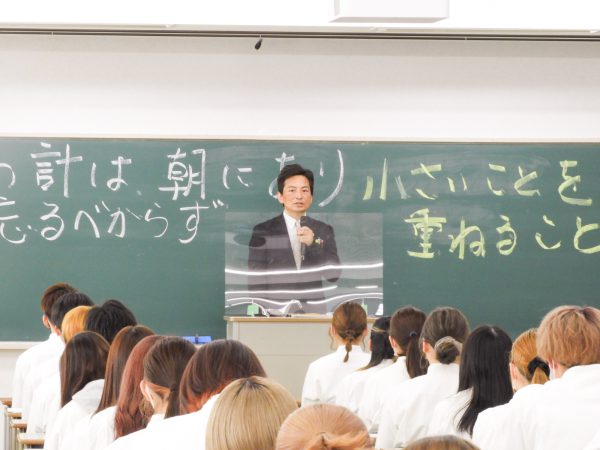 計は、朝にあり
忘るべからず
小さいことを
重ねること